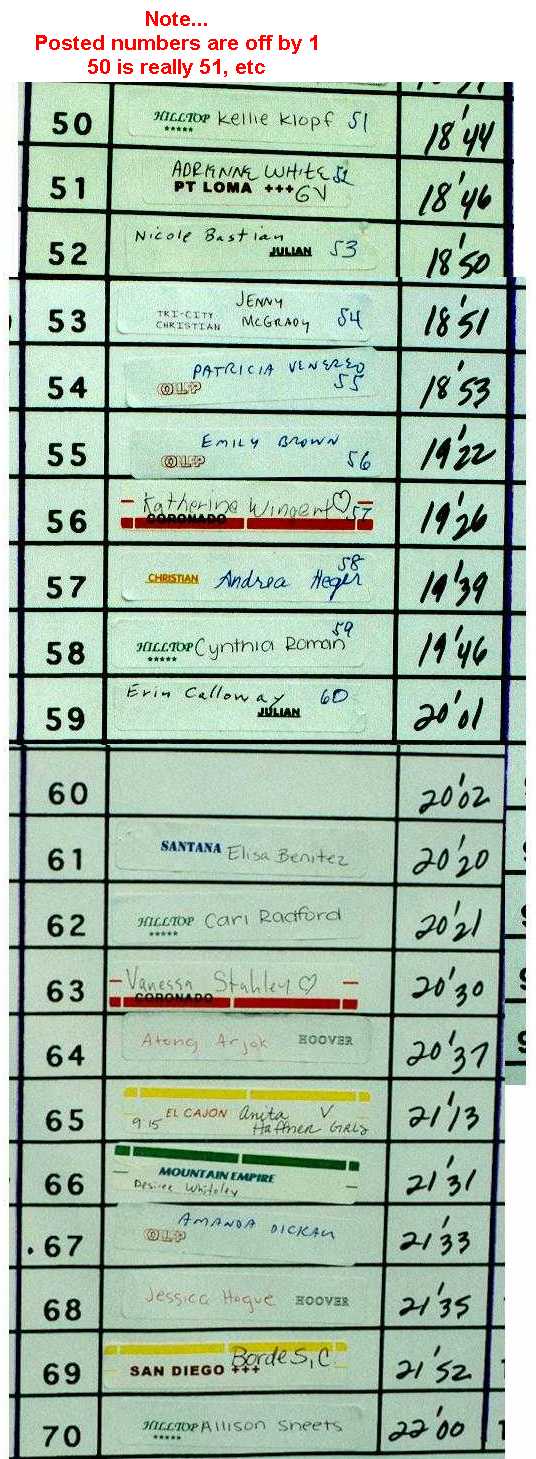 Note...
Posted numbers are off by 1
50 is really 51, etc
50 HILLTOP ***** Kellie Klopf 51 18'44
51 ADRIENNE WHITE 52 PT LOMA +++ GV 18'46
52 Nicole Bastian JULIAN 53 18'50
53 TRI-CITY CHRISTIAN JENNY MCGRADY 54 18'51
54 PATRICIA VENEREO OLP 55 18'53
55 EMILY BROWN OLP 56 19'22
56 Katherine Wingert ♡ 57 CORONADO 19'26
57 CHRISTIAN Andrea Heger 58 19'39
58 HILLTOP ***** Cynthia Roman 59 19'46
59 Erin Calloway JULIAN 60 20'01
60 20'02
61 SANTANA Elisa Benitez 20'20
62 HILLTOP ***** Cari Radford 20'21
63 Vanessa Stahley ♡ CORONADO 20'30
64 Atong Arjok HOOVER 20'37
65 9 15 EL CAJON Anita Haffner V GIRLS 21'13
66 MOUNTAIN EMPIRE Desiree Whiteley 21'31
.67 AMANDA DICKAU OLP 21'33
68 Jessica Hogue HOOVER 21'35
69 SAN DIEGO +++ Bordes, C 21'52
70 HILLTOP ***** Allison Sheets 22'00